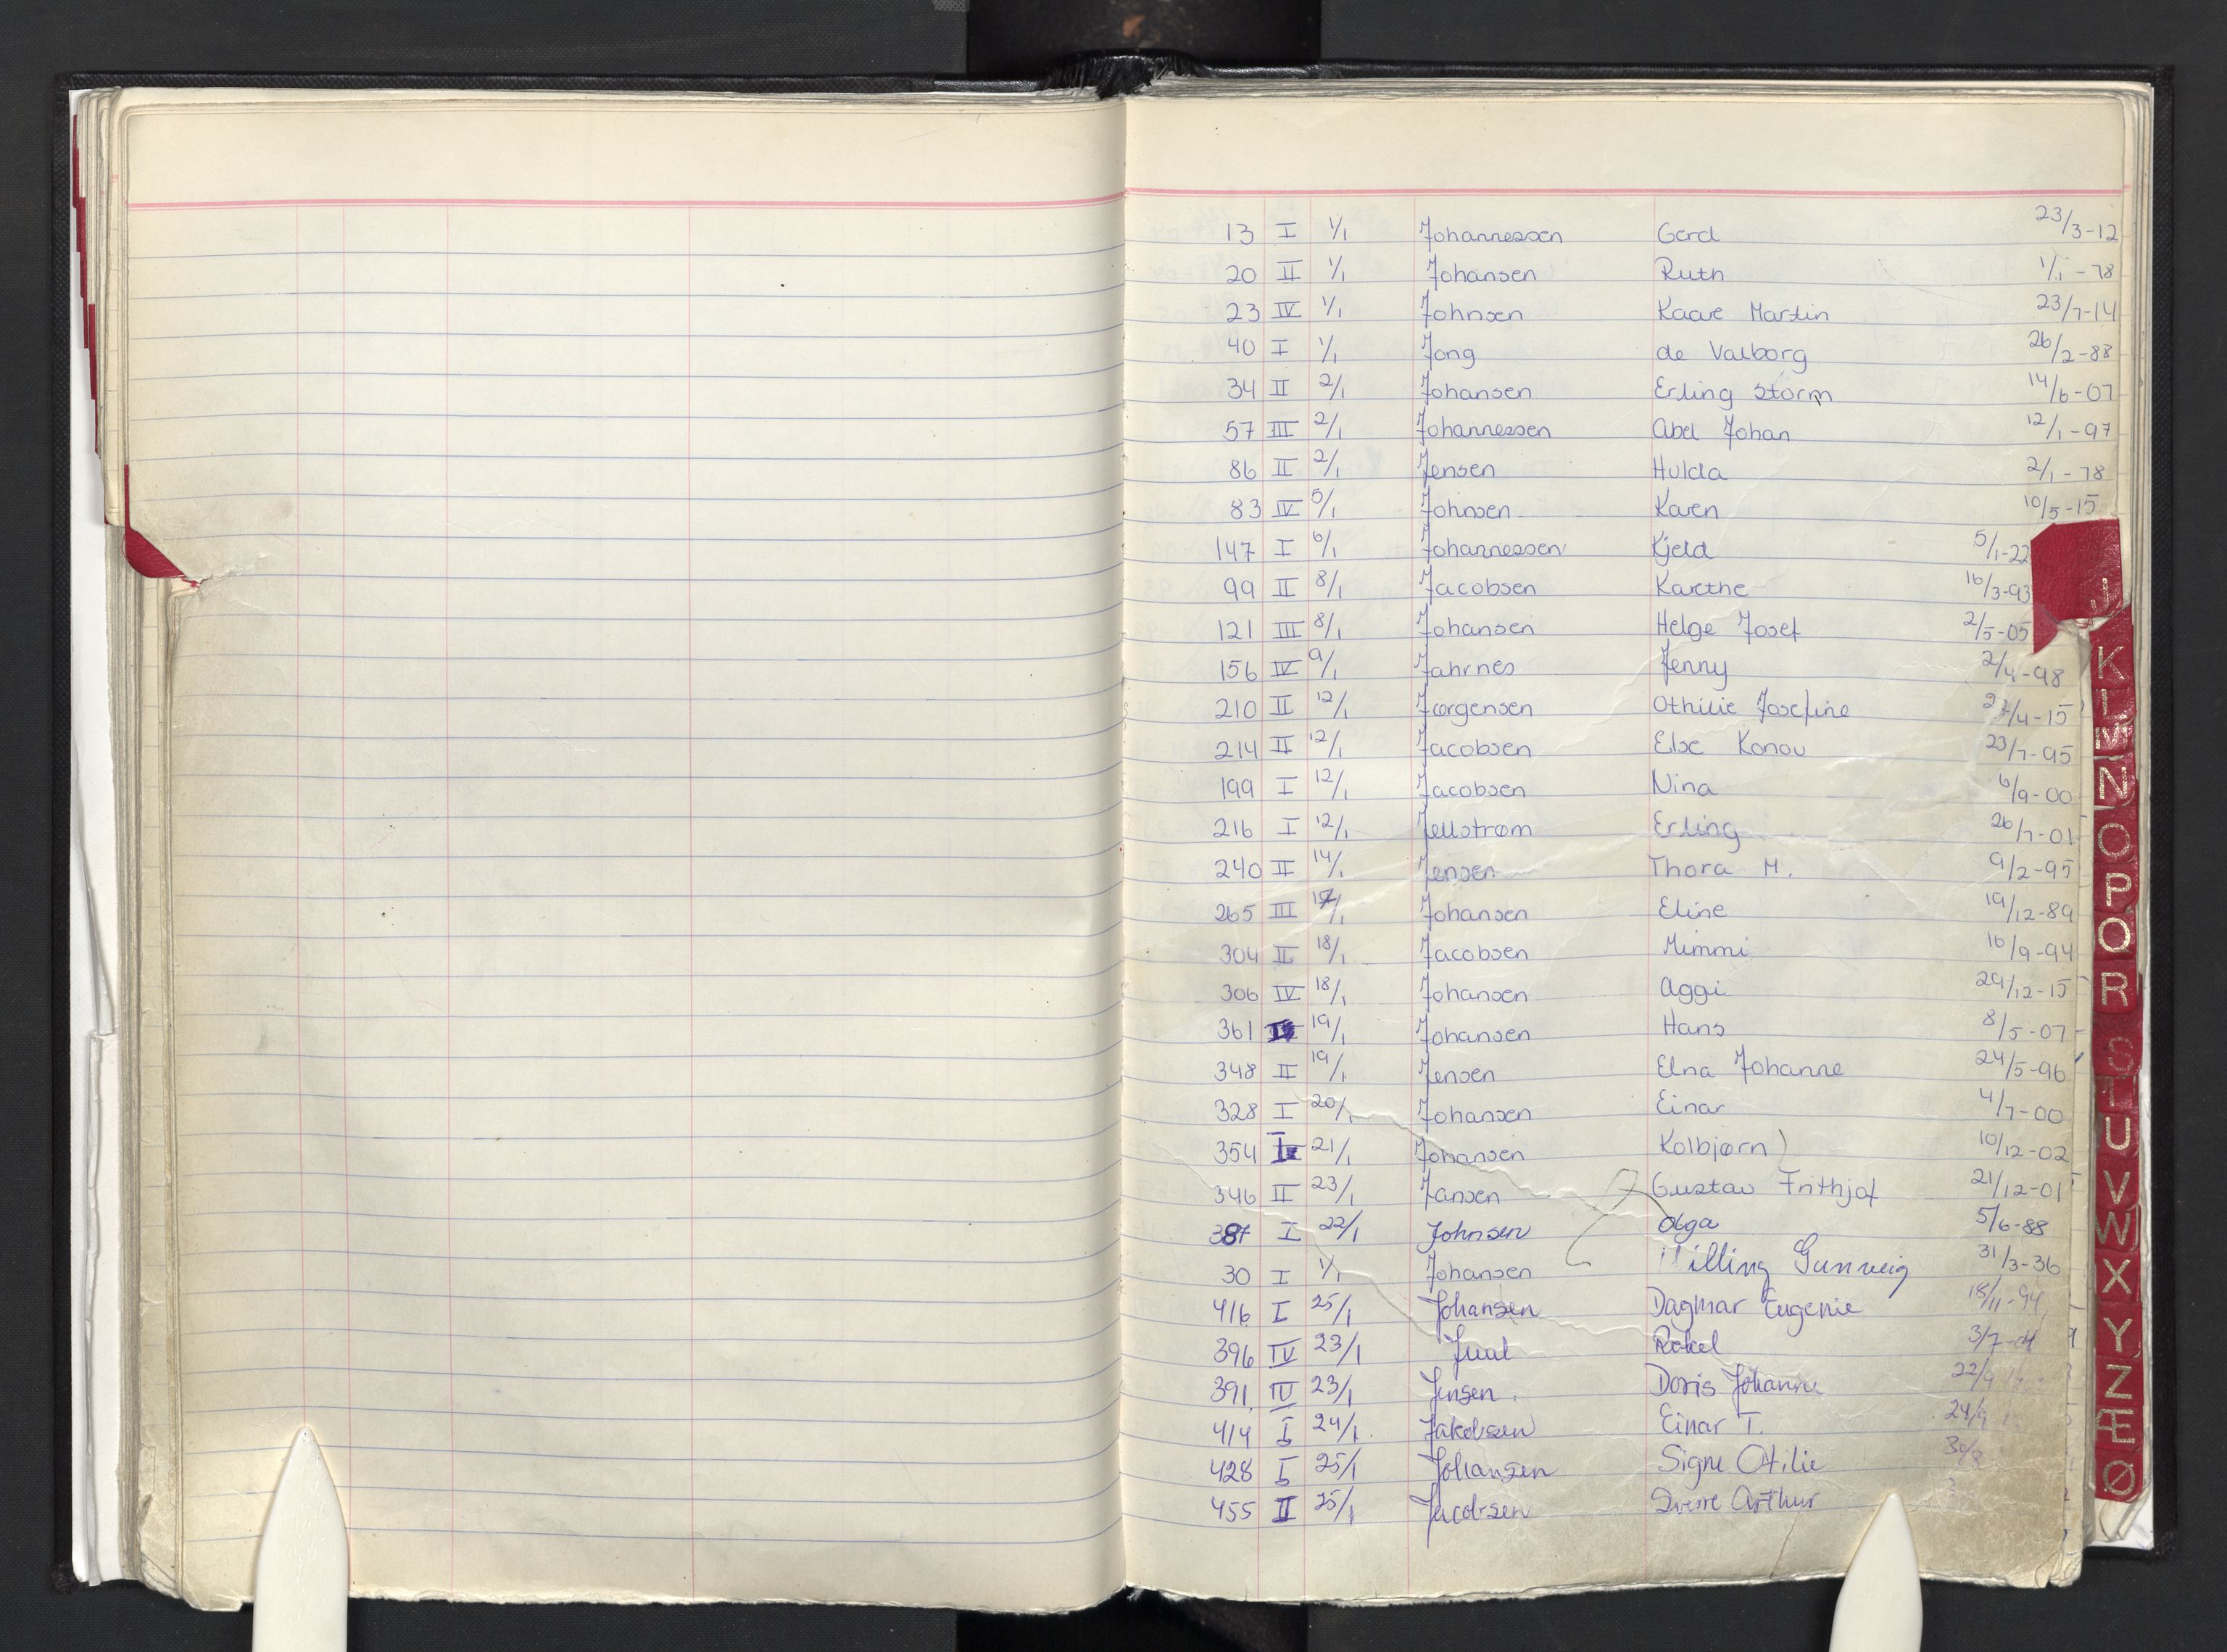 13 I 1/1 Johannessen Gerd 23/3-12
20 II 1/1 Johansen Ruth 1/1-78
23 IV 1/1 Johnsen Kaare Martin 23/7-14
40 I 1/1 Jong de Valborg 26/2-88
34 II 2/1 Johansen Erling Storm 14/6-07
57 III 2/1 Johannessen Abel Johan 12/1-97
86 II 2/1 Jensen Hulda 2/1-78
83 IV 5/1 Johnsen Karen 10/5-15
147 I 6/1 Johannessen Kjeld 5/1-22
99 II 8/1 Jacobsen Karethe 16/3-93
121 III 8/1 Johansen Helge Josef 2/5-05
156 IV 9/1 Jahrnes Jenny 2/4-98
210 II 12/1 Jørgensen Othilie Josefine /4-15
214 II 12/1 Jacobsen Else Konow 23/7-95
199 I 12/1 Jacobsen Nina 6/9-00
216 I 12/1 Jellstrøm Erling 26/7-01
240 II 14/1 Jensen Thora M. 9/2-95
265 III 17/1 Johansen Eline 19/12-89
304 II 18/1 Jacobsen Mimmi 16/9-94
306 IV 18/1 Johansen Aggi 29/12-15
361 19/1 Johansen Hans 8/5-07
348 II 19/1 Jensen Elna Johanne 24/5-96
328 I 20/1 Johansen Einar 4/7-00
354 21/1 Johansen Kolbjørn) 10/12-02
346 II 23/1 Jansen Gustav Frithjof 21/12-01
387 I 22/1 Johnsen Olga 5/6-88
30 I 1/1 Johansen Gunveig 31/3-36
416 I 25/1 Johansen Dagmar Eugenie 18/11-94
396 IV 23/1 Jual Rakel 3/7-04
391 IV 23/1 Jensen Doris Johanne 22/9
414 I 24/1 Jakobsen Einar T. 24/9
428 I 25/1 Johansen Signe Otilie
455 II 25/1 Jacobsen Sverre Arthur
J
K
L
M
N
O
P
Q
R
S
T
U
V
W
X
Y
Z
Æ
Ø